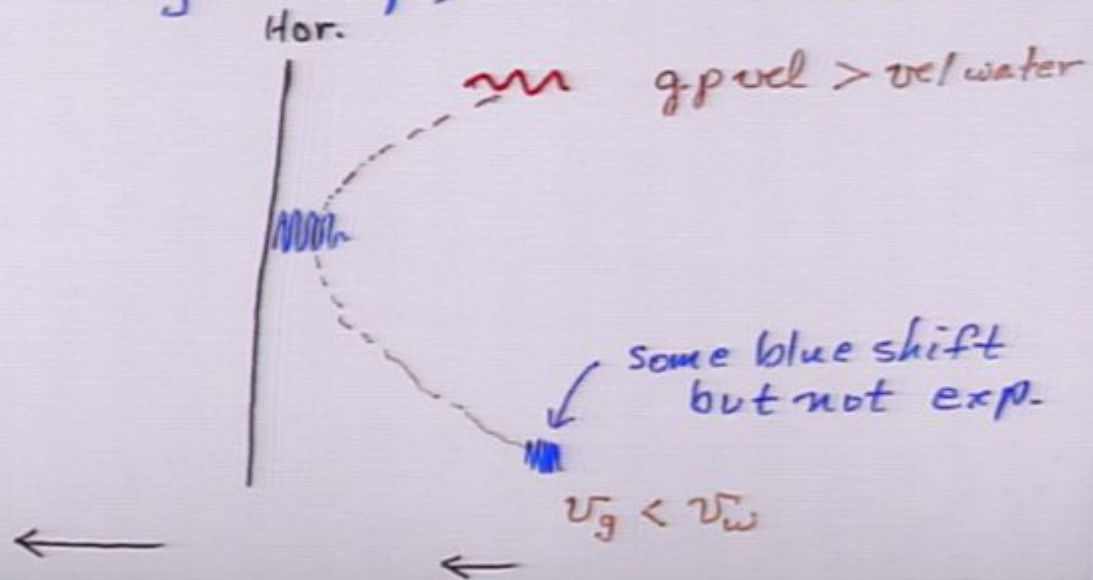 Hor.
g.p vel > vel water
some blue shift
but not exp.
v_g < v_w